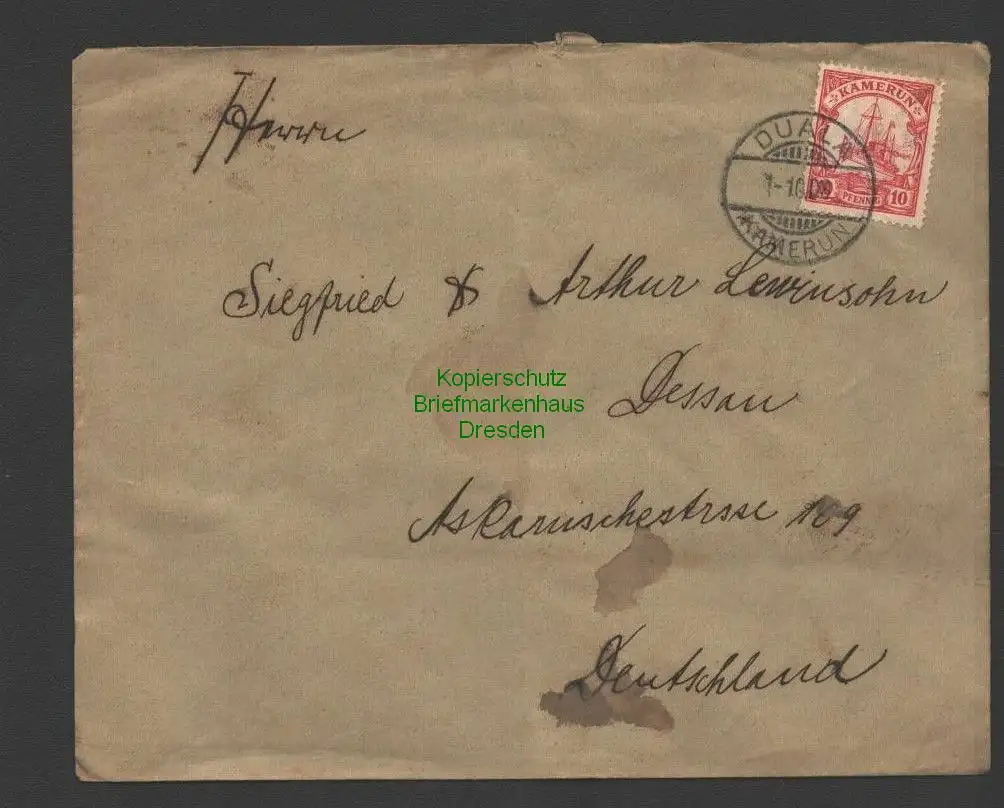 Herrn
KAMERUN
10 PFENNIG 10
DUALA
KAMERUN
Siegfried & Arthur Lewinsohn
Dessau
Kopierschutz
Briefmarkenhaus
Dresden
Askanischestrsse 109
Deutschland